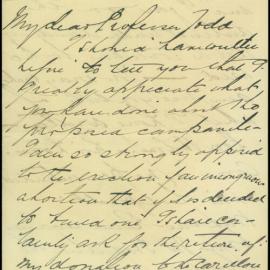 My dear Professor Todd
I should have written
before to tell you that I
greatly appreciate what
you have done about the
proposed campanile.
I am so strongly opposed
to the erection of an incongruous
abortion that if it is decided
to build one I shall cer-
tainly ask for the return of
my donation to the carillon